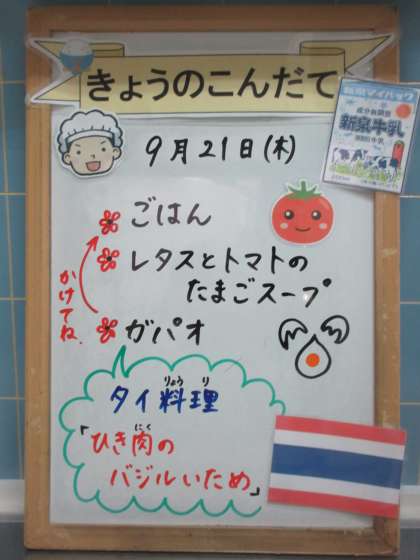 きょうのこんだて
新泉マイパック
新泉牛乳
9月21日(木)
ごはん
レタスとトマトの
たまごスープ
ガパオ
かけてね
りょうり
タイ料理
にく
「ひき肉の
バジルいため」